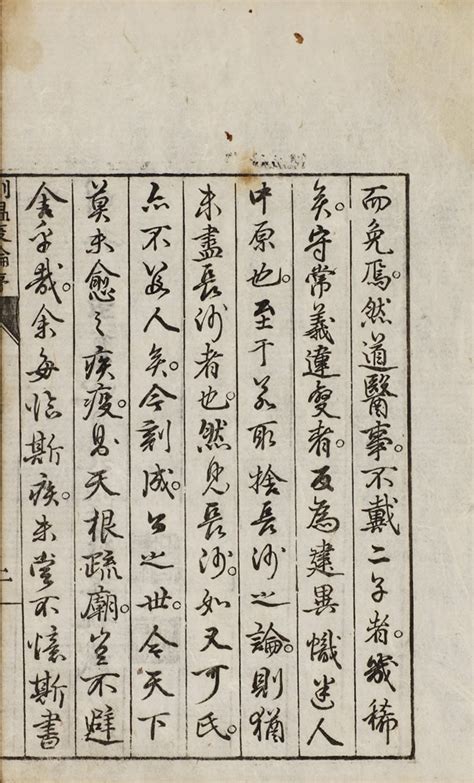 而免焉。然道醫事。不戴二子者。幾稀
矣。守常義違變者。反為建異幟迷人
中原也。至于取捨長沙之論。則猶
未盡長沙者也。然見長沙。如又可氏。
亦不人矣。今刻成。公之世。令天下
莫未愈之疾疫。則天根疏廟。豈不避
舍乎哉。余每臨斯疾。未嘗不懷斯書
刻温疫論序
二